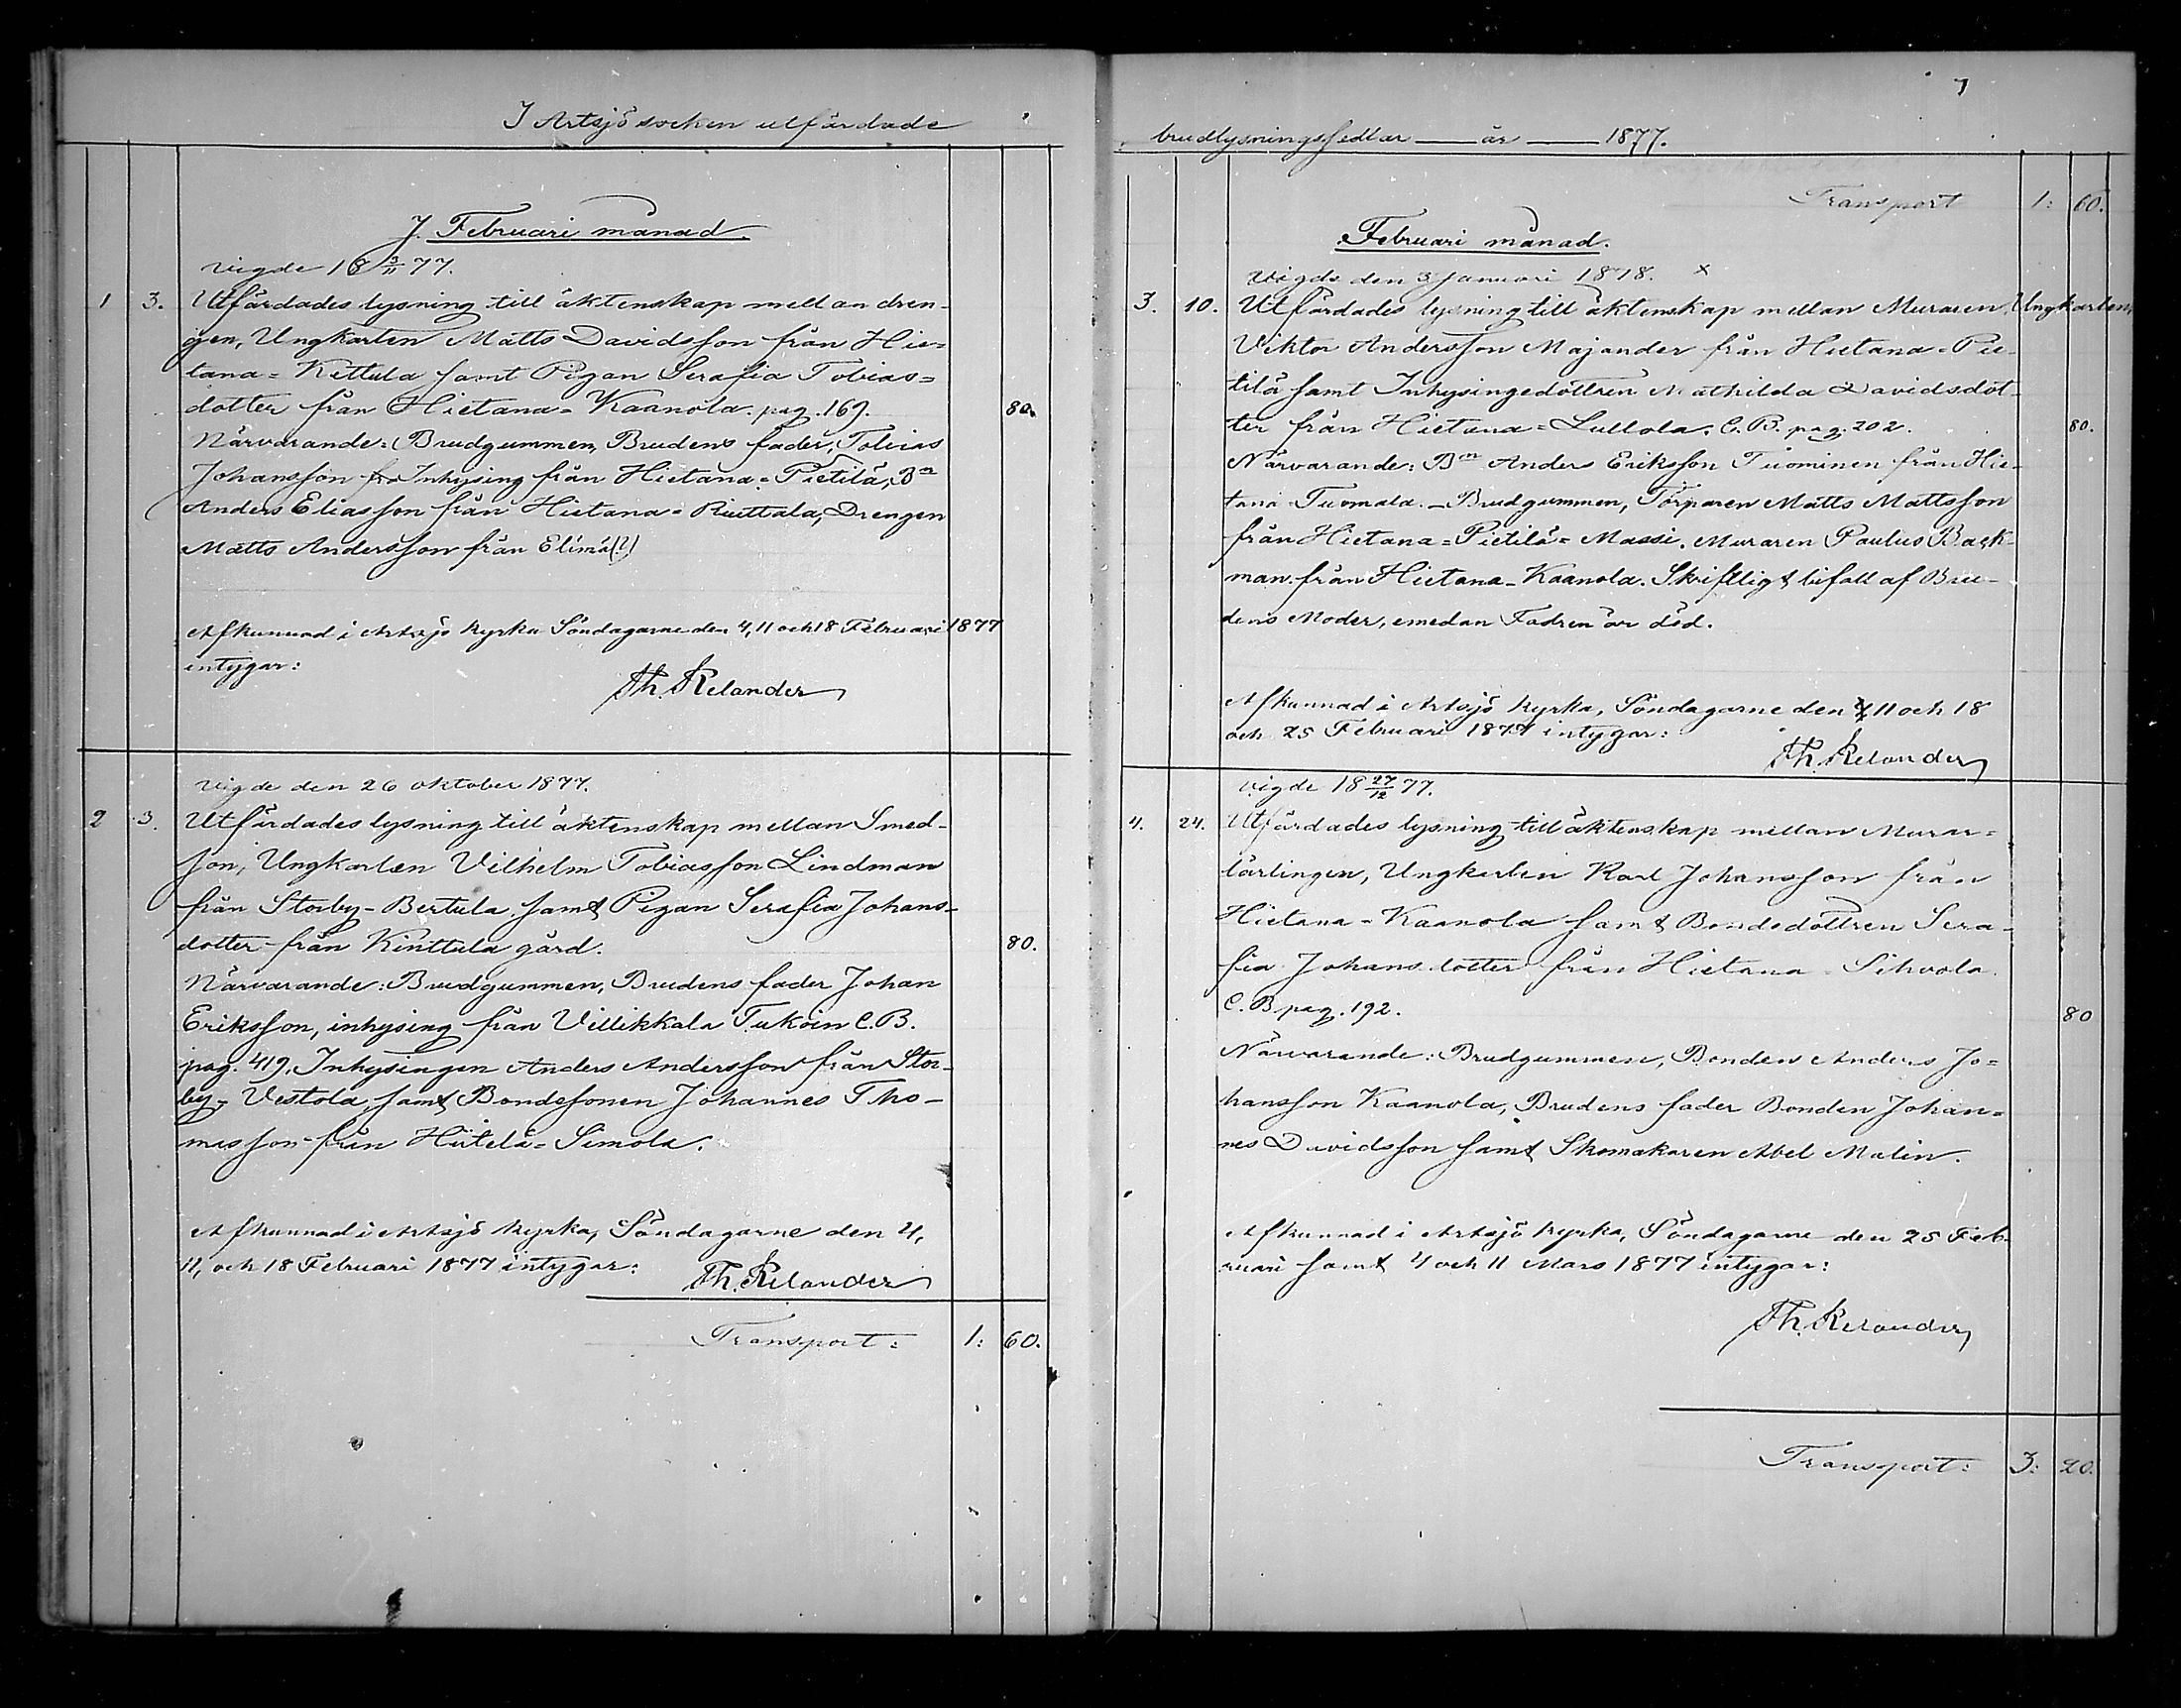 I Artsjö socken utfärdade
I. Februari månad.
Vigde 18 3/11 77.
1 3. Utfärdades lysning till äktenskap mellan dren-
gen, Ungkarlen Matts Davidsson från Hie-
tana=Kettula samt Pigan Serafia Tobias=
dotter från Hietana=Kaanola. pag. 169. 80.
Närvarande: Brudgummen, Brudens fader, Tobias
Johansson fr Inhysing från Hietana=Pietilä, Bn
Anders Eliasson från Hietana=Ruttala, Drengen
Matts Andersson från Elimä(?)
Afkunnad i Artsjö kyrka Söndagarne den 4, 11 och 18 Februari 1877
intygar:
Th. Relander
Vigde den 26 oktober 1877.
2 3. Utfärdades lysning till äktenskap mellan Smed-
son, Ungkarlen Vilhelm Tobiasson Lindman
från Storby-Bertula samt Pigan Serafia Johans-
dotter från Kinttula gård. 80.
Närvarande: Brudgummen, Brudens fader Johan
Eriksson, inhysing från Villikkala Tukoin C.B.
pag. 419, Inhysingen Anders Andersson från Stor-
by-Vestola, samt Bondesonen Johannes Tho-
masson från Hiitelä=Simola.
Afkunnad i Artsjö kyrka, Söndagarne den 4,
11, och 18 Februari 1877 intygar: Th. Relander
Transport: 1: 60.
7
brudlysningssedlar — år — 1877.
Transport 1: 60.
Februari månad.
Vigde den 3 Januari 1878. x
3. 10. Utfärdades lysning till äktenskap mellan Muraren, Ungkarlen,
Viktor Andersson Majander från Hietana=Pie-
tilä samt Inhysingedottren Mathilda Davidsdot-
ter från Hietana=Lullola. C.B. pag. 202. 80.
Närvarande: Bn Anders Eriksson Tuominen från Hie-
tana Tuomala. - Brudgummen, Torparen Matts Mattsson
från Hietana=Pietilä=Massi. Muraren Paulus Back-
man från Hietana-Kaanola. Skriftligt bifall af Bru-
dens Moder, emedan Fadren är död.
Afkunnad i Artsjö kyrka, Söndagarne den 11 och 18
och 25 Februari 1877 intygar:
Th. Relander
vigde 18 27/12 77.
4. 24. Utfärdades lysning till äktenskap mellan Murar=
lärlingen, Ungkarlen Karl Johansson från
Hietana-Kaanola samt Bondedottren Sera-
fia Johansdotter från Hietana Sihvola.
C.B pag. 192. 80
Närvarande: Brudgummen, Bonden Anders Jo=
hansson Kaanola, Brudens fader Bonden Johan=
nes Davidsson samt Skomakaren Abel Malin.
Afkunnad i Artsjö kyrka, Söndagarne den 25 Feb-
ruari samt 4 och 11 Mars 1877 intygar:
Th. Relander
Transport: 3: 20.